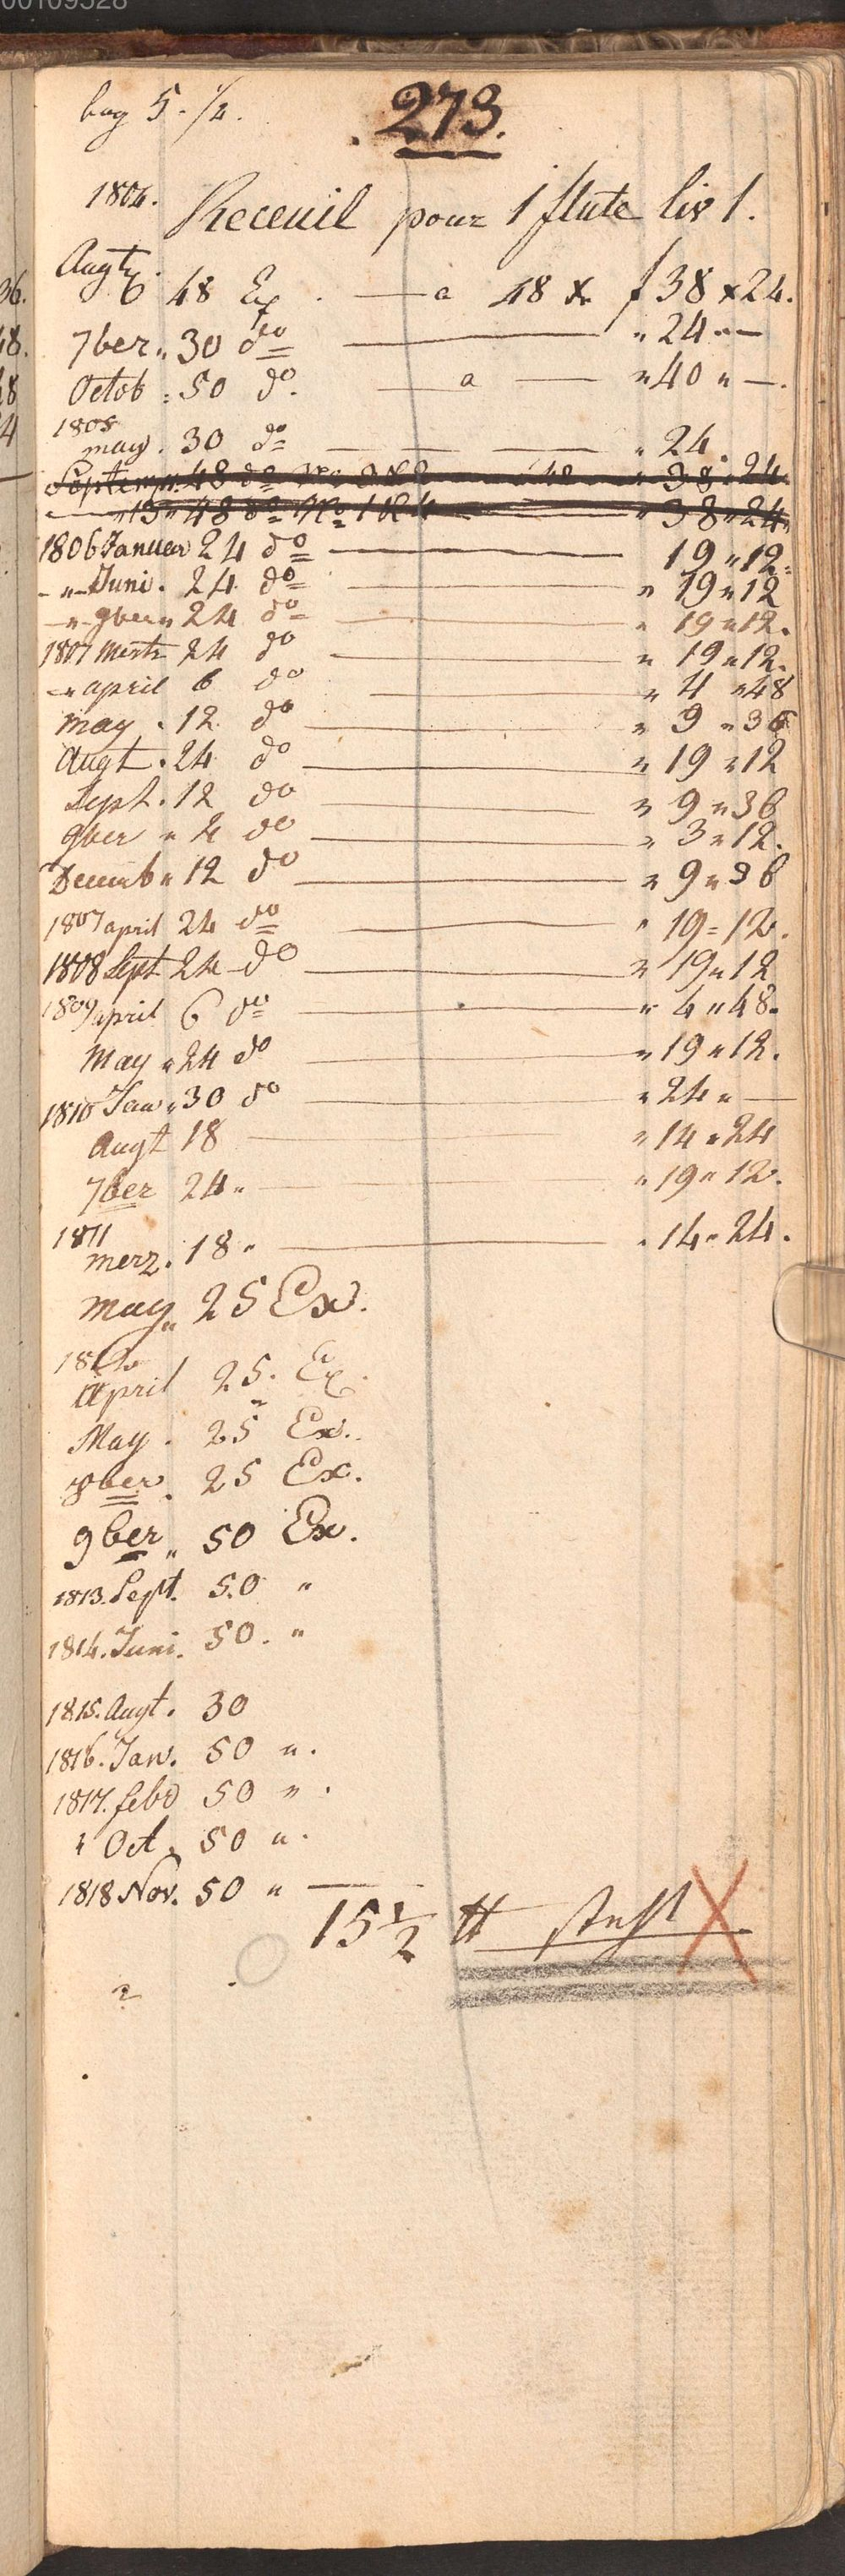 00109528
bog 5. 1/2.
273.
1804. Receuil pour 1 flute liv 1.
Augt 6 48 Ex. — a 48 x f 38 x 24.
7ber „ 30 do — „ 24 „ —
Octob : 50 do. — a — „ 40 „ —.
1805
may . 30 do — „ 24.
Septempr. 48 do No 3 & 2 48 „ 38 „ 24.
„ 15 „ 48 do No 1 & 4 — „ 38 „ 24 „
1806 Januar 24 do — 19 „ 12.
- „ - Juni . 24 do — „ 19 „ 12
- „ - 9ber „ 24 do — „ 19 „ 12.
1807 Mertz 24 do — „ 19 „ 12.
- „ april 6 do — „ 4 „ 48
may . 12 do — „ 9 „ 36
Augt . 24 do — „ 19 „ 12
Sept . 12 do — „ 9 „ 36
9ber „ 4 do — „ 3 „ 12.
Decemb „ 12 do — „ 9 „ 36
1807 april 24 do — „ 19 = 12.
1808 Sept 24 do — „ 19 „ 12
1809 april 6 do — „ 4 „ 48.
May „ 24 do — „ 19 „ 12.
1810 Jan „ 30 do — „ 24 „ —
Augt 18 — „ 14 „ 24
7ber 24 „ — „ 19 „ 12.
1811
merz. 18 „ — „ 14 „ 24.
may „ 25 Ex.
1812
April 25. Ex.
May . 25 Ex.
8ber . 25 Ex.
9ber „ 50 Ex.
1813. Sept. 50 „
1814. Juni. 50. „
1815. Augt. 30
1816. Jan. 50 „ .
1817. febr 50 „ .
„ Oct. 50 „ .
1818 Nov. 50 „ —
15 1/2 ℔